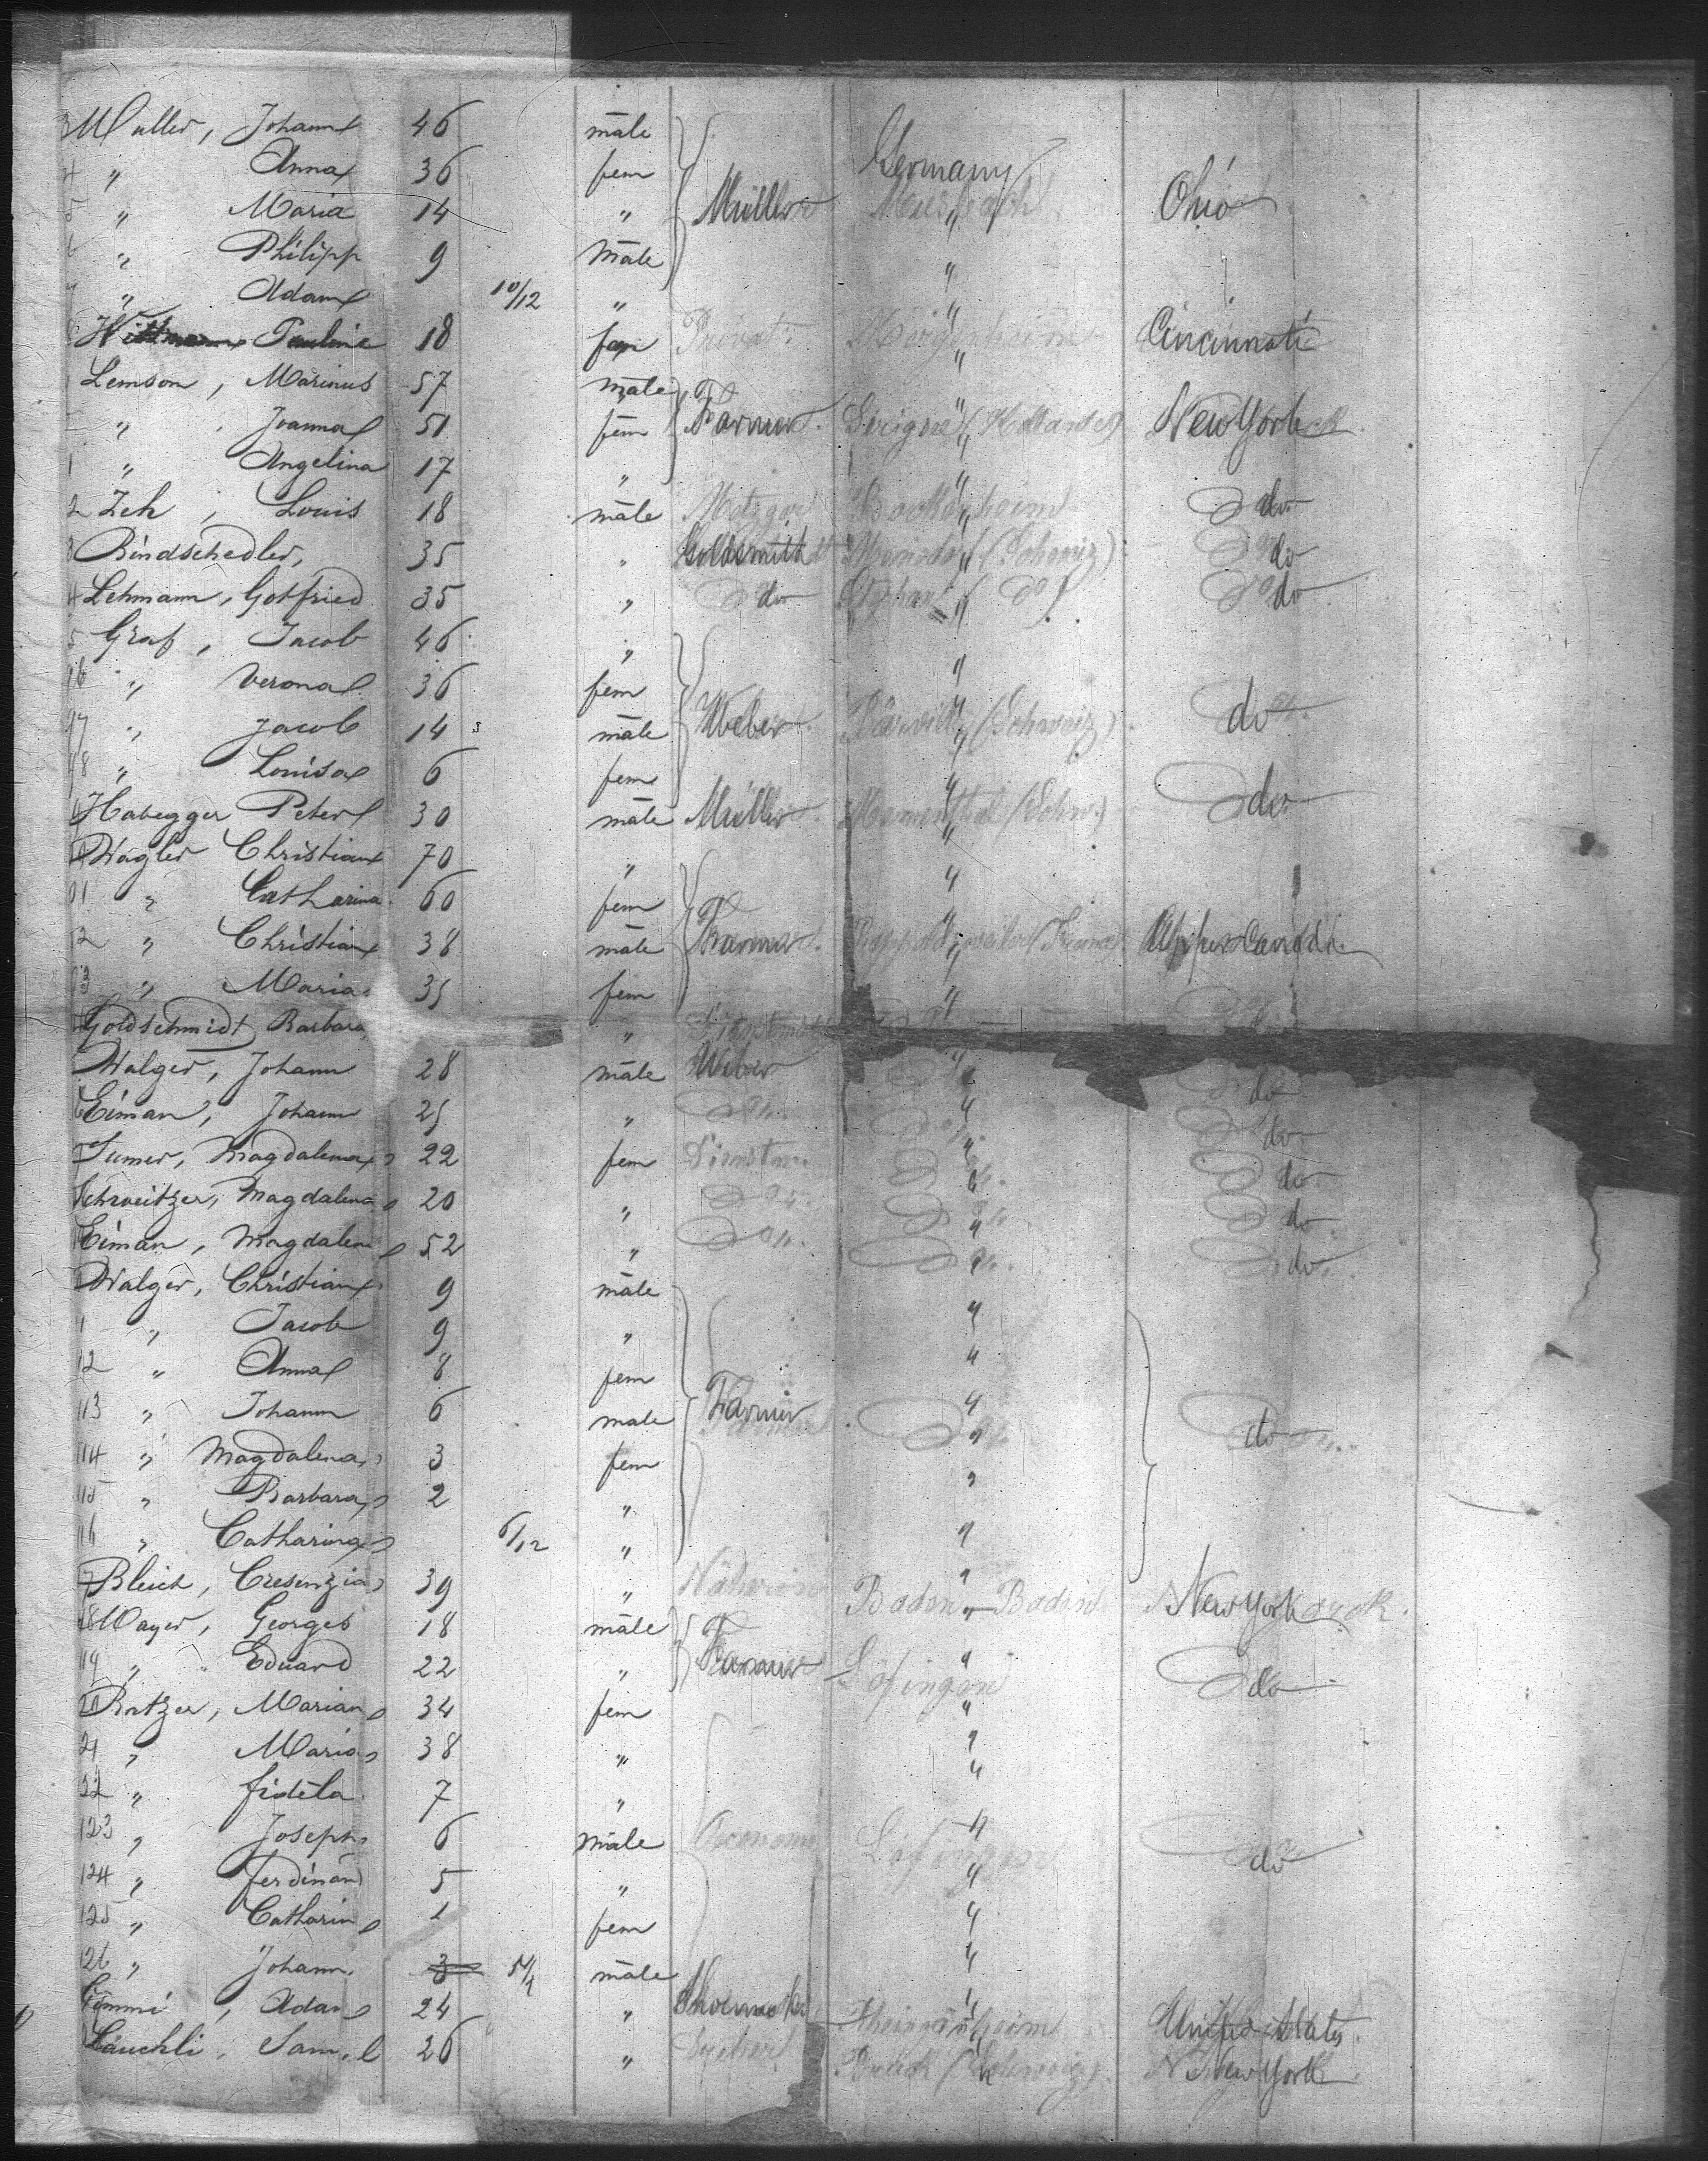 Muller, Johann 46 male Germany
4 " Anna 36 fem
5 " Maria 14 " Müller " Ohio
6 " Philipp 9 male "
7 " Adam 10/12 " "
Pauline 18 fem Privat: " Cincinnati
Lemson, Marinus 57 male "
" Joanna 51 fem Farmer " New York
1 " Angelina 17 " "
2 Zeh, Louis 18 male Metzger Bockenheim " do
3 Bindschedler, 35 " Goldsmith (Schweiz) " do
4 Lehmann, Gotfried 35 " do (do) " do
5 Graf, Jacob 46 " "
16 " Verona 36 fem "
17 " Jacob 14 male Weber (Schweiz) " do
18 " Louisa 6 fem "
Habegger Peter 30 male Müller (Schw.) " do
Wagler Christian 70 " "
01 " Catharina 60 fem "
2 " Christian 38 male Farmer " Upper Canada
3 " Maria 35 fem "
Goldschmidt Barbara "
Walger, Johann 28 male Weber " do
Eiman, Johann 25 " do " do
Magdalena 22 fem " do
Schweitzer, Magdalena 20 " do " do
Eiman, Magdalena 52 " do " do
Walger, Christian 9 male "
11 " Jacob 9 " "
12 " Anna 8 fem "
113 " Johann 6 male Farmer " do
114 " Magdalena 3 fem "
115 " Barbara 2 " "
116 " Catharina 6/12 " "
Bleich, Cresenzia 39 " Näherin Baden-Baden " New York
118 Mayer, Georges 18 male
119 " Eduard 22 " Farmer Löfingen " do
Ratzer, Marian 34 fem "
21 " Maria 38 " "
22 " Fidela 7 " "
123 " Joseph 6 male Löfingen " do
124 " Ferdinand 5 " "
125 " Catharin 1 fem "
126 " Johann 3 male "
Adam 24 " Shoemaker United States
Läuchli, Sam.l 26 " (Schweiz) " New York